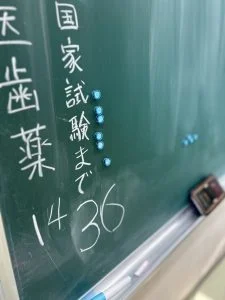 国家試験まで
医歯薬
14 36